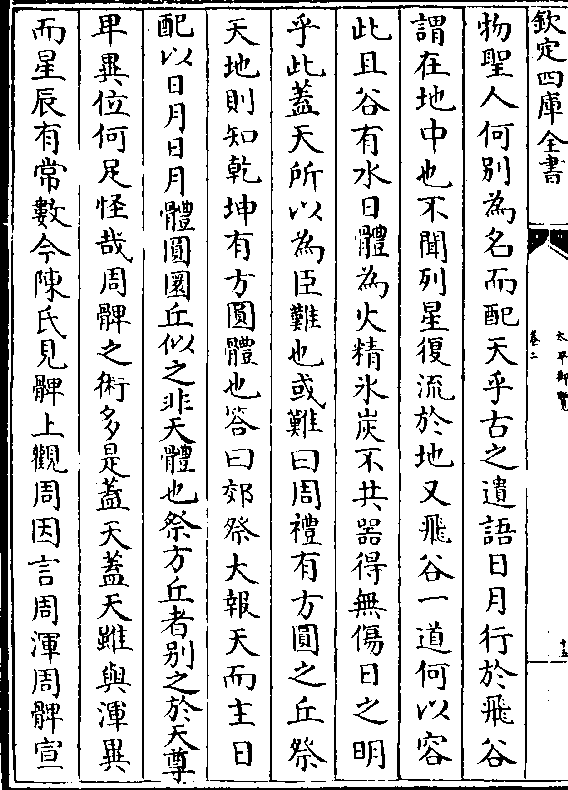 欽定四庫全書
太平御覽
卷二
十五
物聖人何別為名而配天乎古之遺語日月行於飛谷
謂在地中也不聞列星復流於地又飛谷一道何以容
此且谷有水日體為火精氷炭不共器得無傷日之明
乎此蓋天所以為臣難也或難曰周禮有方圓之丘祭
天地則知乾坤有方圓體也答曰郊祭大報天而主日
配以日月日月體圓圜丘似之非天體也祭方丘者别之於天尊
卑異位何足怪哉周髀之術多是蓋天蓋天雖與渾異
而星辰有常數今陳氏見髀上觀周因言周渾周髀宣